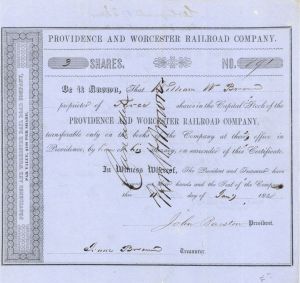 PROVIDENCE AND WORCESTER RAILROAD COMPANY.
3 SHARES. NO. 791
Be it Known, That William W Brown
proprietor of three shares in the Capital Stock of the
PROVIDENCE AND WORCESTER RAILROAD COMPANY,
transferable only on the books of the Company at their office in
Providence, by him or his on surrender of this Certificate.
In Witness Whereof, The President and Treasurer have
hands and the Seal of the Company
this day of Jany 18
John Barstow President.
Treasurer.
PROVIDENCE AND WORCESTER RAIL ROAD COMPANY,